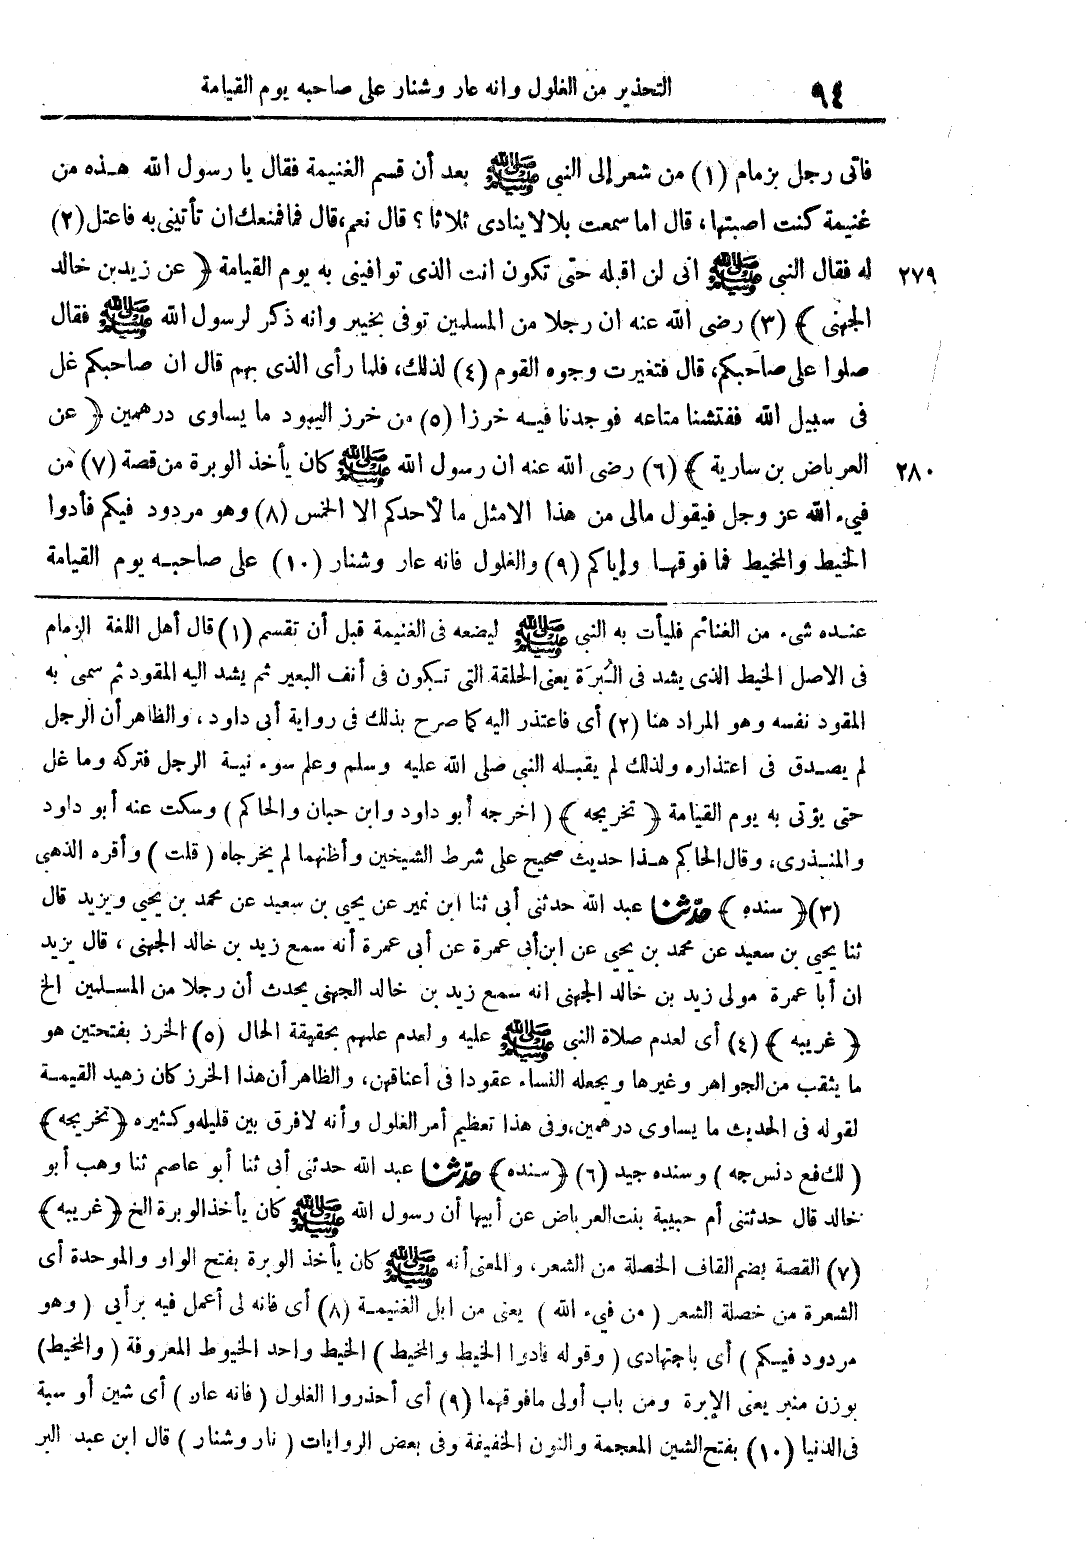 ٩٤ التحذير من الغلول وانه عار وشنار على صاحبه يوم القيامة
فاتى رجل بزمام (١) من شعر إلى النبى ﷺ بعد أن قسم الغنيمة فقال يا رسول الله هذه من
غنيمة كنت اصبتها، قال اما سمعت بلالا ينادى ثلاثا؟ قال نعم، قال فما منعك ان تأتينى به فاعتل (٢)
٢٧٩ له فقال النبى ﷺ انى لن اقبله حتى تكون انت الذى توافينى به يوم القيامة ﴿ عن زيد بن خالد
الجهنى ﴾ (٣) رضى الله عنه ان رجلا من المسلمين توفى بخيبر وانه ذكر لرسول الله ﷺ فقال
صلوا على صاحبكم، قال فتغيرت وجوه القوم (٤) لذلك، فلما رأى الذى بهم قال ان صاحبكم غل
فى سبيل الله ففتشنا متاعه فوجدنا فيه خرزا (٥) من خرز اليهود ما يساوى درهمين ﴿ عن
٢٨٠ العرباض بن سارية ﴾ (٦) رضى الله عنه ان رسول الله ﷺ كان يأخذ الوبرة من قصة (٧) من
فيء الله عز وجل فيقول مالى من هذا الا مثل ما لأحدكم الا الخمس (٨) وهو مردود فيكم فأدوا
الخيط والمخيط فما فوقها وإياكم (٩) والغلول فانه عار وشنار (١٠) على صاحبه يوم القيامة
عنده شىء من الغنائم فليأت به النبى ﷺ ليضعه فى الغنيمة قبل أن تقسم (١) قال أهل اللغة الزمام
فى الاصل الخيط الذى يشد فى البُرَة يعنى الحلقة التى تكون فى أنف البعير ثم يشد اليه المقود ثم سمى به
المقود نفسه وهو المراد هنا (٢) أى فاعتذر اليه كما صرح بذلك فى رواية أبى داود، والظاهر أن الرجل
لم يصدق فى اعتذاره ولذلك لم يقبله النبى صلى الله عليه وسلم وعلم سوء نية الرجل فتركه وما غل
حتى يؤتى به يوم القيامة ﴿ تخريجه ﴾ ( اخرجه أبو داود وابن حبان والحاكم ) وسكت عنه أبو داود
والمنذرى، وقال الحاكم هذا حديث صحيح على شرط الشيخين وأظنهما لم يخرجاه ( قلت ) وأقره الذهبى
(٣) ﴿ سنده ﴾ حدثنا عبد الله حدثنى أبى ثنا ابن نمير عن يحيى بن سعيد عن محمد بن يحيى ويزيد قال
ثنا يحيى بن سعيد عن محمد بن يحيى عن ابن أبى عمرة عن أبى عمرة أنه سمع زيد بن خالد الجهنى، قال يزيد
ان أبا عمرة مولى زيد بن خالد الجهنى انه سمع زيد بن خالد الجهنى يحدث أن رجلا من المسلمين الخ
﴿ غريبه ﴾ (٤) أى لعدم صلاة النبى ﷺ عليه ولعدم علمهم بحقيقة الحال (٥) الخرز بفتحتين هو
ما يثقب من الجواهر وغيرها ويجعله النساء عقودا فى أعناقهن، والظاهر أن هذا الخرز كان زهيد القيمة
لقوله فى الحديث ما يساوى درهمين، وفى هذا تعظيم أمر الغلول وأنه لا فرق بين قليله وكثيره ﴿ تخريجه ﴾
( لك فع د نس جه ) وسنده جيد (٦) ﴿ سنده ﴾ حدثنا عبد الله حدثنى أبى ثنا أبو عاصم ثنا وهب أبو
خالد قال حدثتنى أم حبيبة بنت العرباض عن أبيها أن رسول الله ﷺ كان يأخذ الوبرة الخ ﴿ غريبه ﴾
(٧) القصة بضم القاف الخصلة من الشعر، والمعنى أنه ﷺ كان يأخذ الوبرة بفتح الواو والموحدة أى
الشعرة من خصلة الشعر ( من فيء الله ) يعنى من ابل الغنيمة (٨) أى فانه لى أعمل فيه برأيى ( وهو
مردود فيكم ) أى باجتهادى ( وقوله فادوا الخيط والمخيط ) الخيط واحد الخيوط المعروفة ( والمخيط)
بوزن منبر يعنى الإبرة ومن باب أولى ما فوقهما (٩) أى أحذروا الغلول ( فانه عار ) أى شين أو سبة
فى الدنيا (١٠) بفتح الشين المعجمة والنون الخفيفة وفى بعض الروايات ( نار وشنار ) قال ابن عبد البر